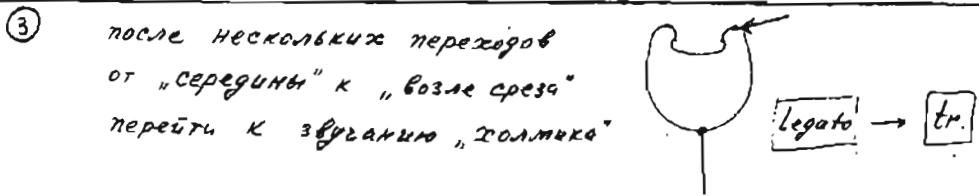 ③ после нескольких переходов
от „середины" к „возле среза"
перейти к звучанию „холмика"
legato → tr.